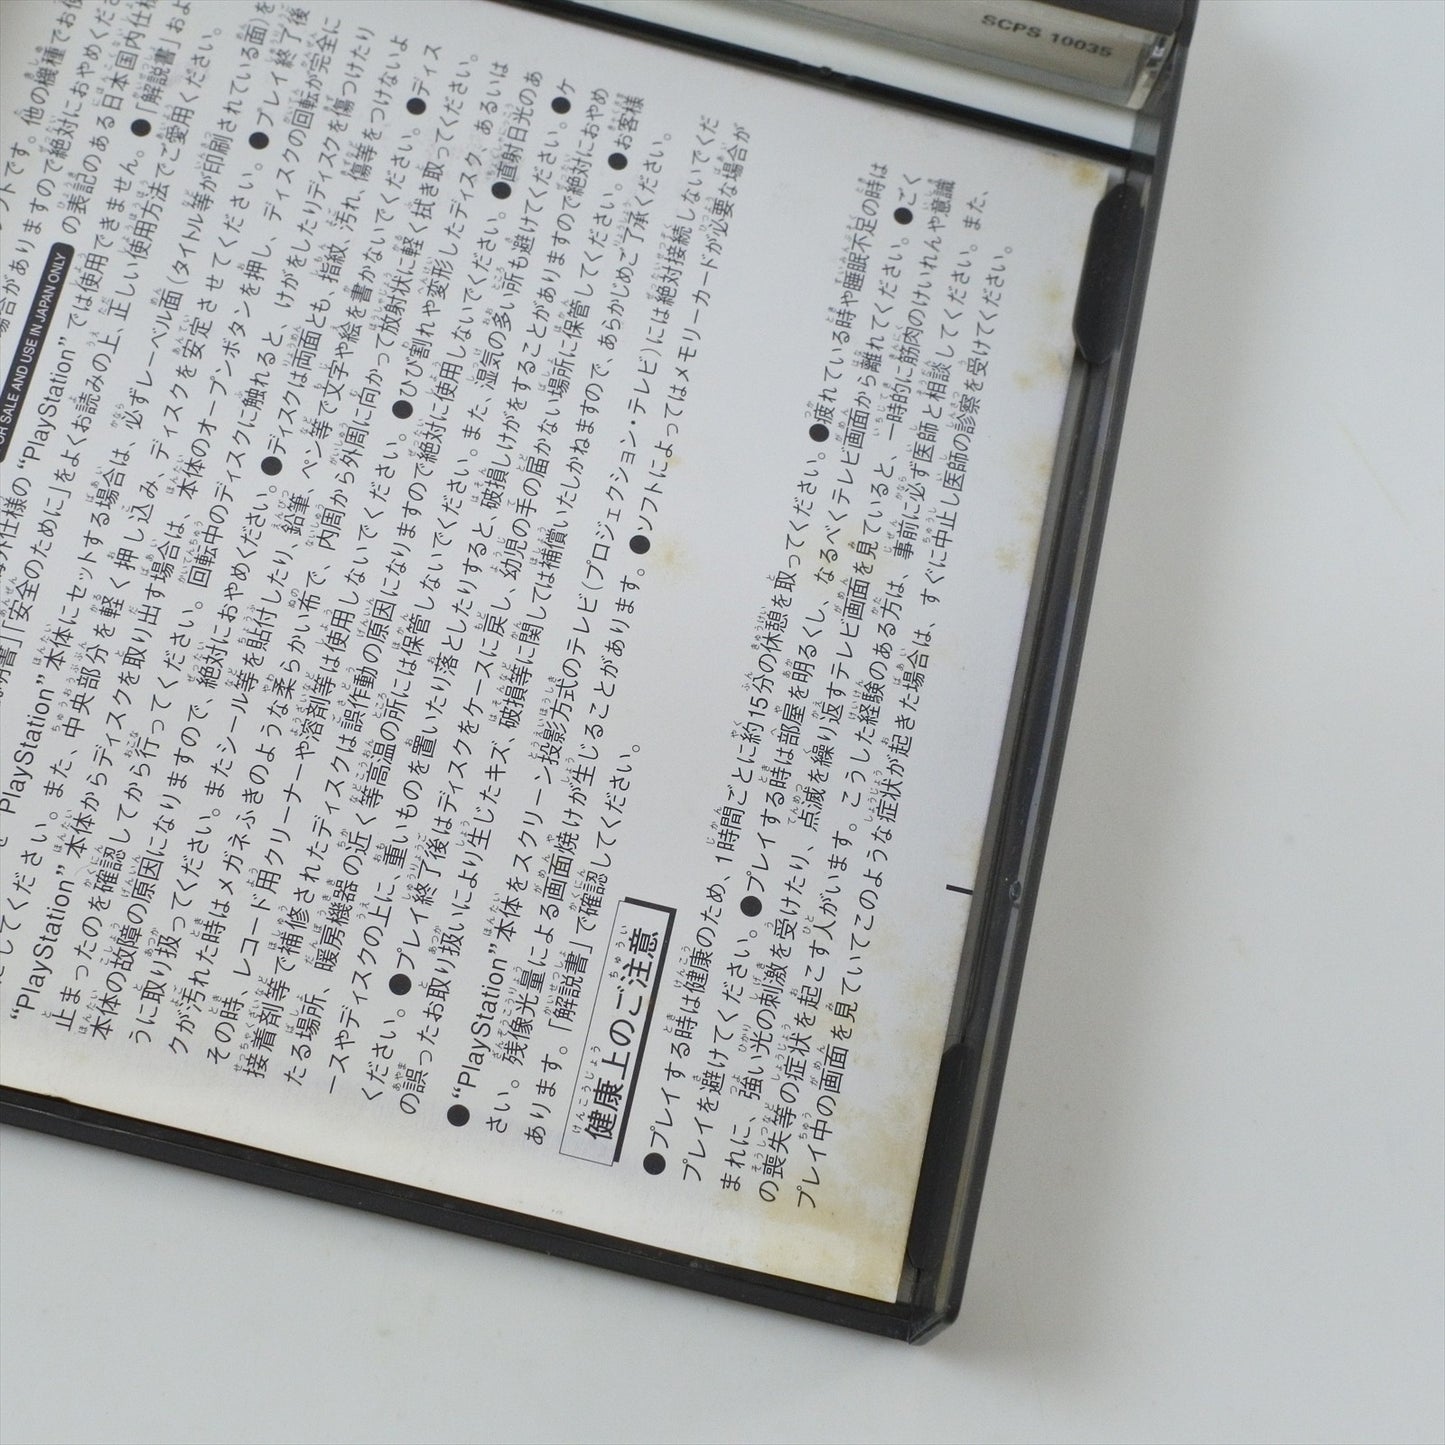 SCPS 10035
FOR SALE AND USE IN JAPAN ONLY
の表記のある日本国内仕様
"PlayStation"では使用できません。●「解説書」およ
「安全のために」をよくお読みの上、正しい使用方法でご愛用ください。
"PlayStation"本体にセットする場合は、必ずレーベル面(タイトル等が印刷されている面)を
してください。また、中央部分を軽く押し込み、ディスクを安定させてください。●プレイ終了後
"PlayStation"本体からディスクを取り出す場合は、本体のオープンボタンを押し、ディスクの回転が完全に
止まったのを確認してから行ってください。回転中のディスクに触れると、けがをしたりディスクを傷つけたり
本体の故障の原因になりますので、絶対におやめください。●ディスクは両面とも、指紋、汚れ、傷等をつけないよ
うに取り扱ってください。またシール等を貼付したり、鉛筆、ペン等で文字や絵を書かないでください。●ディス
クが汚れた時はメガネふきのような柔らかい布で、内周から外周に向かって放射状に軽く拭き取ってください。
その時、レコード用クリーナーや溶剤等は使用しないでください。●ひび割れや変形したディスク、あるいは
接着剤等で補修されたディスクは誤作動の原因になりますので絶対に使用しないでください。●直射日光のあ
たる場所、暖房機器の近く等高温の所には保管しないでください。また、湿気の多い所も避けてください。●ケ
ースやディスクの上に、重いものを置いたり落としたりすると、破損しけがをすることがありますので絶対におやめ
ください。●プレイ終了後はディスクをケースに戻し、幼児の手の届かない場所に保管してください。●お客様
の誤ったお取り扱いにより生じたキズ、破損等に関しては補償いたしかねますので、あらかじめご了承ください。
●"PlayStation"本体をスクリーン投影方式のテレビ(プロジェクション・テレビ)には絶対接続しないでくだ
さい。残像光量による画面焼けが生じることがあります。●ソフトによってはメモリーカードが必要な場合が
あります。「解説書」で確認してください。
健康上のご注意
●プレイする時は健康のため、1時間ごとに約15分の休憩を取ってください。●疲れている時や睡眠不足の時は
プレイを避けてください。●プレイする時は部屋を明るくし、なるべくテレビ画面から離れてください。●ごく
まれに、強い光の刺激を受けたり、点滅を繰り返すテレビ画面を見ていると、一時的に筋肉のけいれんや意識
の喪失等の症状を起こす人がいます。こうした経験のある方は、事前に必ず医師と相談してください。また、
プレイ中の画面を見ていてこのような症状が起きた場合は、すぐに中止し医師の診察を受けてください。